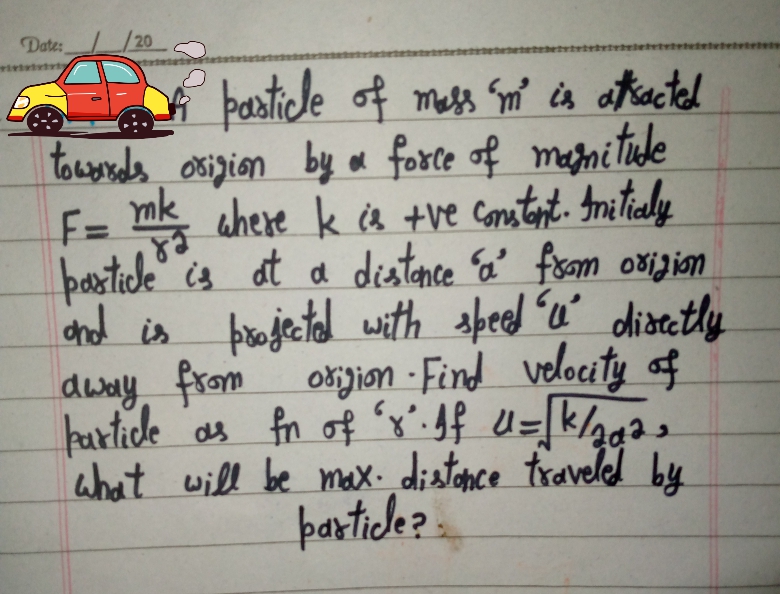 Date: __/__/20__
A particle of mass 'm' is attracted
towards origion by a force of magnitude
F = mk/r² where k is +ve constant. Initialy
particle is at a distance 'a' from origion
and is projected with speed 'u' directly
away from origion. Find velocity of
particle as fn of 'r'. If u = √(k/2a²),
what will be max. distance traveled by
particle?